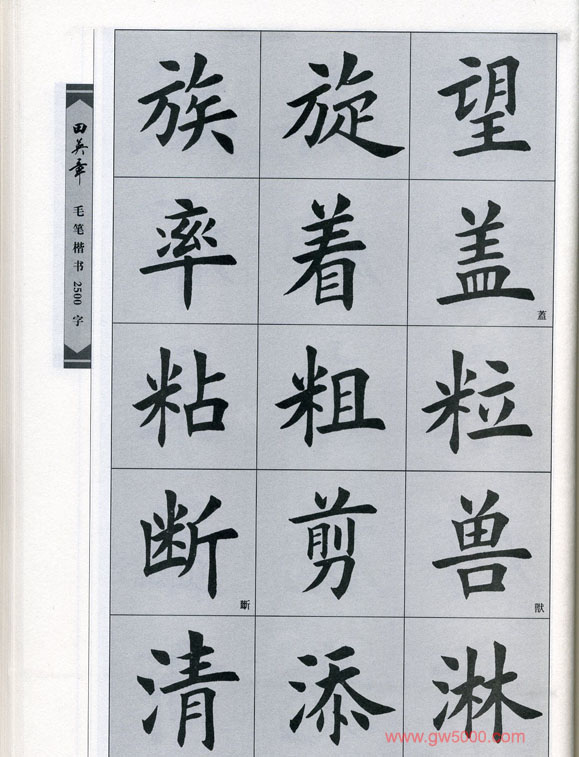 田英章 毛笔楷书 2500 字
族 旋 望
率 着 盖
蓋
粘 粗 粒
断 剪 兽
斷 獸
清 添 淋
www.gw5000.com